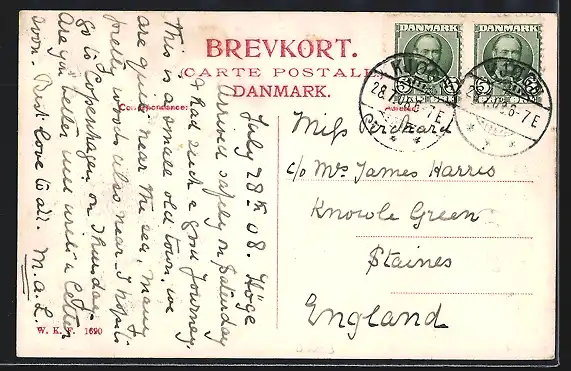 BREVKORT.
CARTE POSTALE
DANMARK.
Correspondance:
DANMARK
DANMARK
28.7.08. 6-7 E
6-7 E
July 28th 08. Höge
Arrived safely on Saturday
& had such a good journey.
This is a small old town, we
are quite near the sea, many
pretty woods also near. I hope to
go to Copenhagen on Thursday.
Are you better and write a letter
soon. Best love to all. M.a.L.
Miss
c/o Mrs James Harris
Knowle Green
Staines
England
W. K. F. 1690